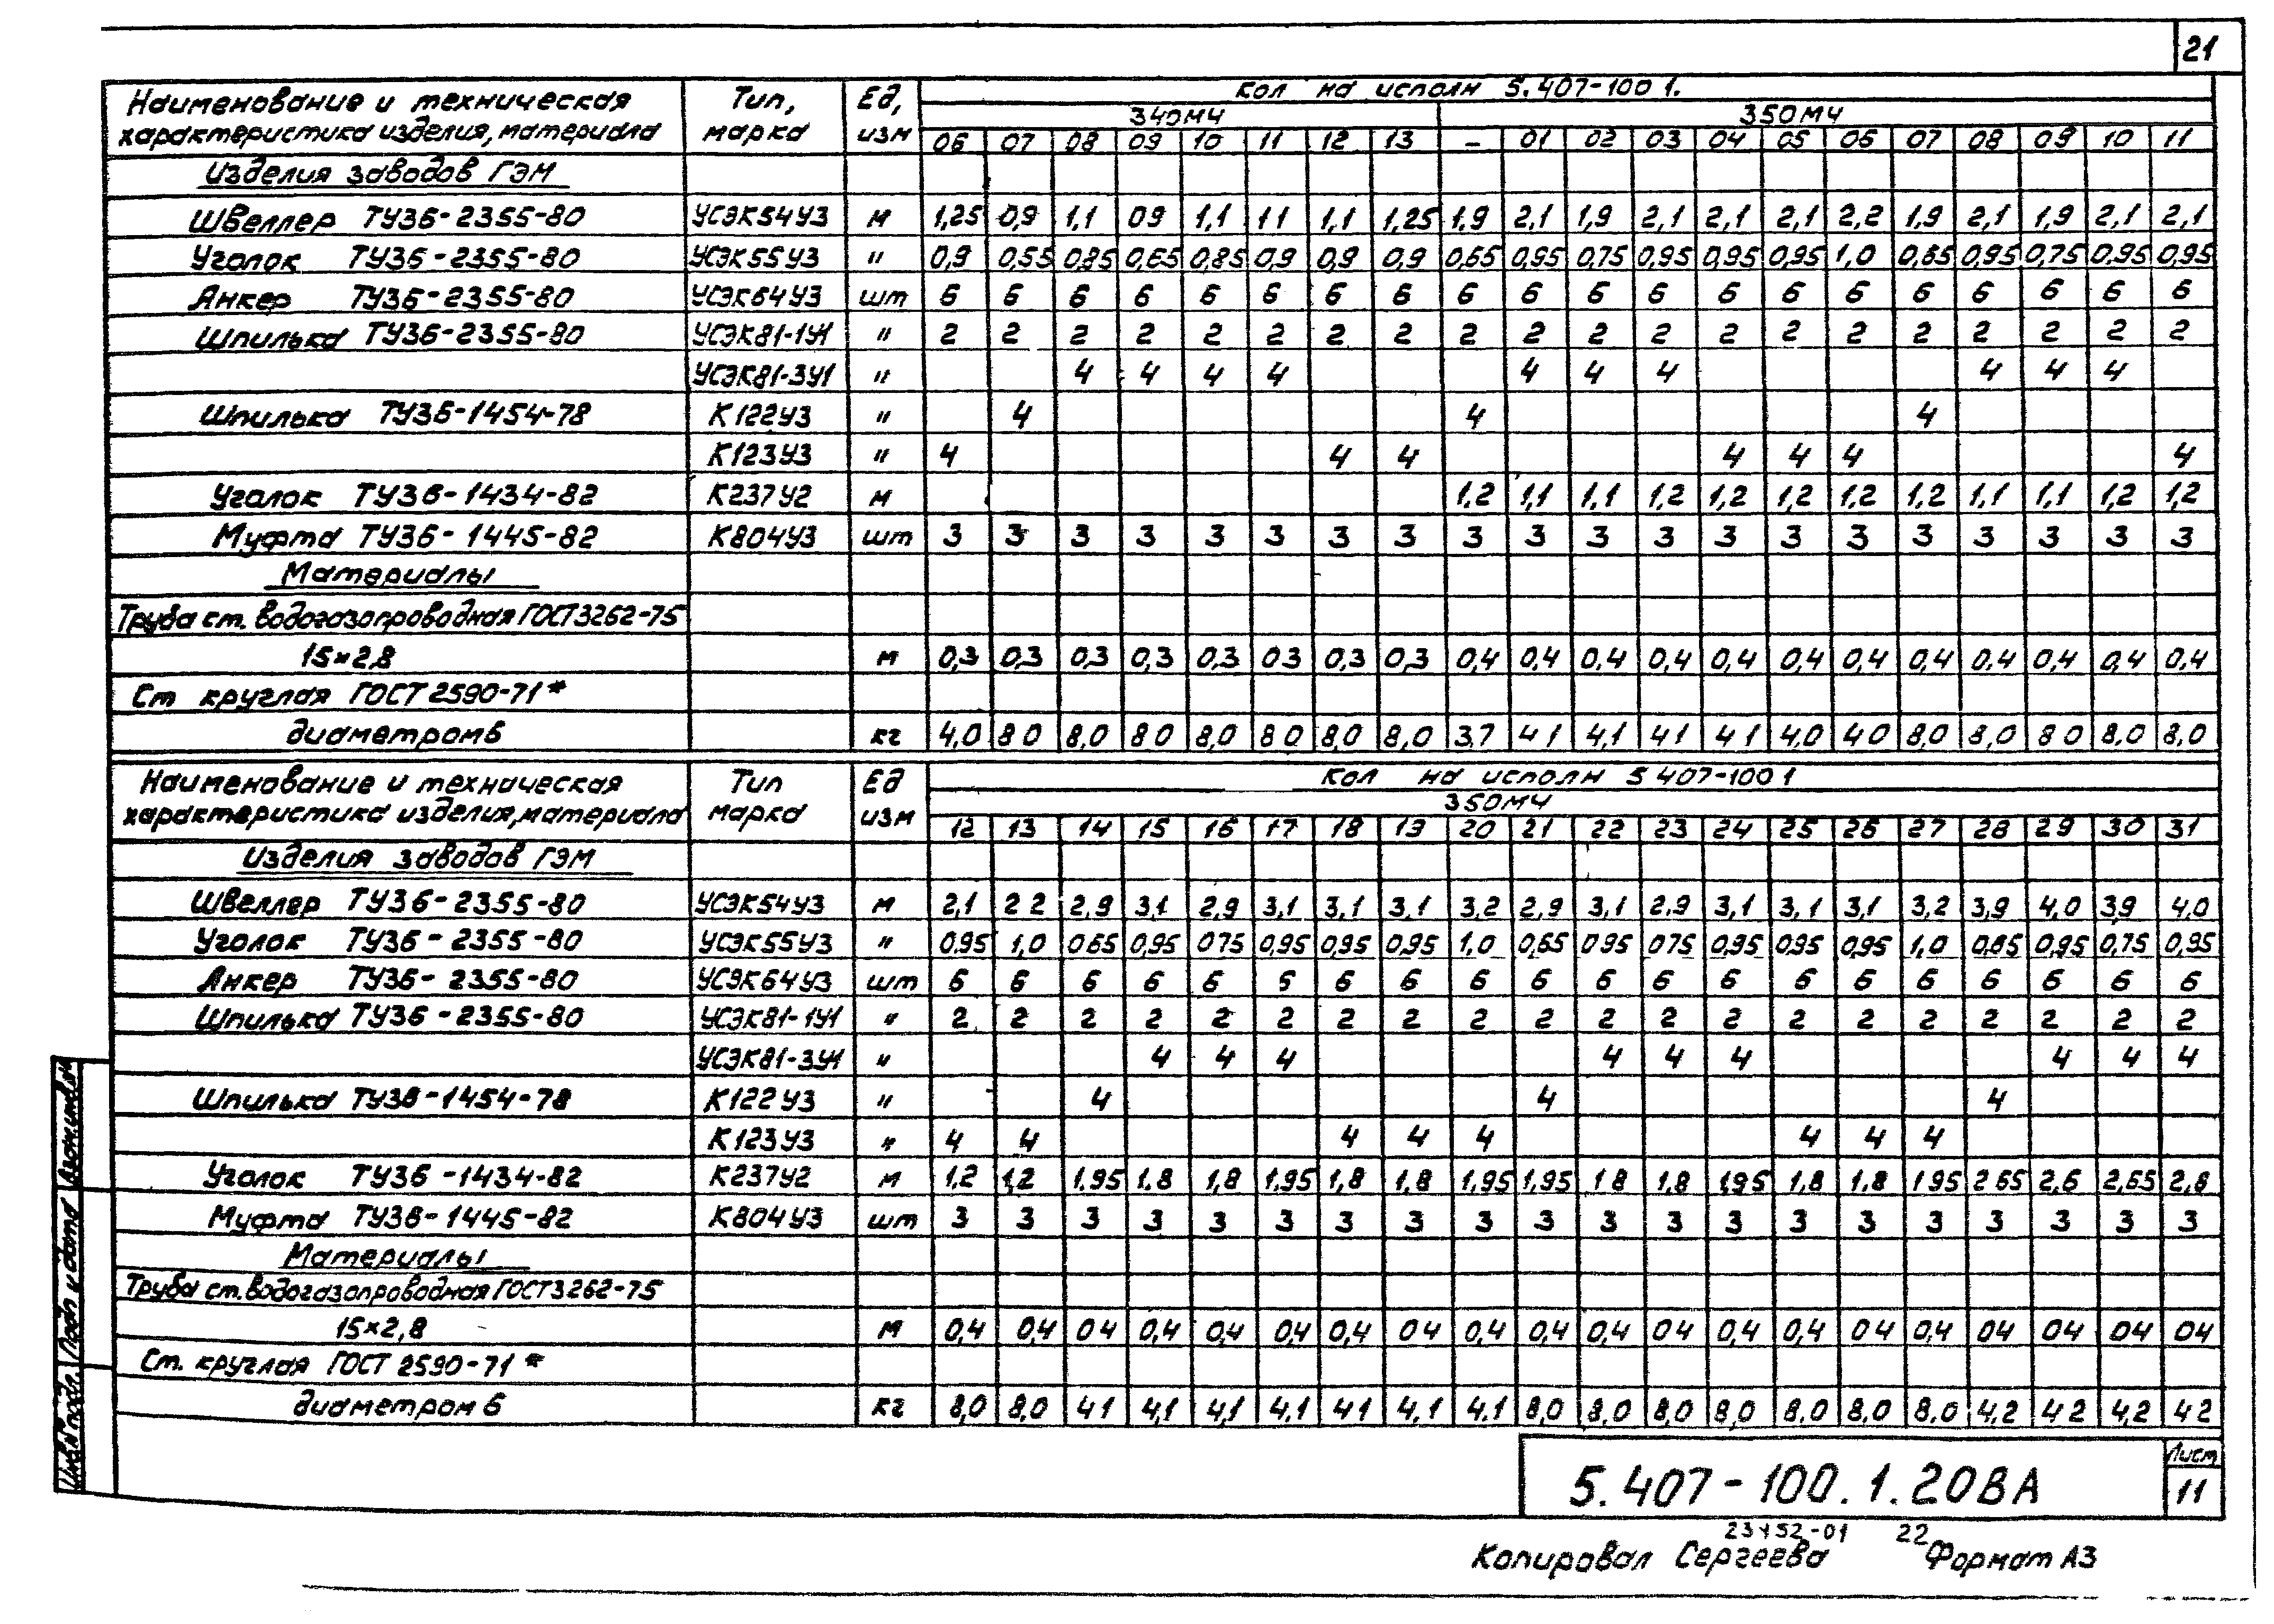 21
Наименование и техническая характеристика изделия, материала Тип, марка Ед, изм Кол на исполн 5.407-100 1.
340МЧ 350МЧ
06 07 08 09 10 11 12 13 – 01 02 03 04 05 06 07 08 09 10 11
Изделия заводов ГЭМ
Швеллер ТУ36-2355-80 УСЭК54У3 м 1,25 0,9 1,1 09 1,1 11 1,1 1,25 1,9 2,1 1,9 2,1 2,1 2,1 2,2 1,9 2,1 1,9 2,1 2,1
Уголок ТУ36-2355-80 УСЭК55У3 " 0,9 0,55 0,85 0,65 0,85 0,9 0,9 0,9 0,65 0,95 0,75 0,95 0,95 0,95 1,0 0,65 0,95 0,75 0,95 0,95
Анкер ТУ36-2355-80 УСЭК64У3 шт 6 6 6 6 6 6 6 6 6 6 6 6 6 6 6 6 6 6 6 6
Шпилька ТУ36-2355-80 УСЭК81-1У1 " 2 2 2 2 2 2 2 2 2 2 2 2 2 2 2 2 2 2 2 2
УСЭК81-3У1 " 4 4 4 4 4 4 4 4 4 4
Шпилька ТУ36-1454-78 К122У3 " 4 4 4
К123У3 " 4 4 4 4 4 4 4
Уголок ТУ36-1434-82 К237У2 м 1,2 1,1 1,1 1,2 1,2 1,2 1,2 1,2 1,1 1,1 1,2 1,2
Муфта ТУ36-1445-82 К804У3 шт 3 3 3 3 3 3 3 3 3 3 3 3 3 3 3 3 3 3 3 3
Материалы
Труба ст. водогазопроводная ГОСТ3262-75
15×2,8 м 0,3 0,3 0,3 0,3 0,3 03 0,3 0,3 0,4 0,4 0,4 0,4 0,4 0,4 0,4 0,4 0,4 0,4 0,4 0,4
Ст круглая ГОСТ 2590-71*
диаметром 6 кг 4,0 80 8,0 80 8,0 80 8,0 8,0 3,7 41 4,1 41 41 4,0 40 8,0 8,0 80 8,0 8,0
Наименование и техническая характеристика изделия, материала Тип марка Ед изм Кол на исполн 5 407-100 1
350МЧ
12 13 14 15 16 17 18 19 20 21 22 23 24 25 26 27 28 29 30 31
Изделия заводов ГЭМ
Швеллер ТУ36-2355-80 УСЭК54У3 м 2,1 22 2,9 3,1 2,9 3,1 3,1 3,1 3,2 2,9 3,1 2,9 3,1 3,1 3,1 3,2 3,9 4,0 3,9 4,0
Уголок ТУ36-2355-80 УСЭК55У3 " 0,95 1,0 065 0,95 075 0,95 0,95 0,95 1,0 0,65 095 075 0,95 0,95 0,95 1,0 0,65 0,95 0,75 0,95
Анкер ТУ36-2355-80 УСЭК64У3 шт 6 6 6 6 6 6 6 6 6 6 6 6 6 6 6 6 6 6 6 6
Шпилька ТУ36-2355-80 УСЭК81-1У1 " 2 2 2 2 2 2 2 2 2 2 2 2 2 2 2 2 2 2 2 2
УСЭК81-3У1 " 4 4 4 4 4 4 4 4 4
Шпилька ТУ36-1454-78 К122У3 " 4 4 4
К123У3 " 4 4 4 4 4 4 4 4
Уголок ТУ36-1434-82 К237У2 м 1,2 1,2 1,95 1,8 1,8 1,95 1,8 1,8 1,95 1,95 18 1,8 1,95 1,8 1,8 195 265 2,6 2,65 2,6
Муфта ТУ36-1445-82 К804У3 шт 3 3 3 3 3 3 3 3 3 3 3 3 3 3 3 3 3 3 3 3
Материалы
Труба ст. водогазопроводная ГОСТ3262-75
15×2,8 м 0,4 0,4 04 0,4 0,4 0,4 0,4 04 0,4 0,4 0,4 04 0,4 0,4 04 0,4 04 04 04 04
Ст. круглая ГОСТ 2590-71*
диаметром 6 кг 8,0 8,0 41 4,1 4,1 4,1 41 4,1 4,1 8,0 8,0 8,0 8,0 8,0 8,0 8,0 4,2 42 4,2 42
Инв.№ подл. Подп и дата Взам.инв.№
5.407-100.1.20ВА
Лист
11
23452-01 22
Копировал Сергеева Формат А3